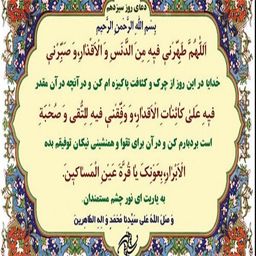 دعای روز سیزدهم
بِسْمِ اللهِ الرَّحْمنِ الرَّحیمِ
اَللّهُمَّ طَهِّرْنی فیهِ مِنَ الدَّنَسِ وَ الْاَقْذارِ، وَ صَبِّرْنی
خدایا در این روز از چرک و کثافت پاکیزه ام کن و در آنچه در آن مقدر
فیهِ عَلی کائِناتِ الْاَقْدارِ، وَ وَفِّقْنی فیهِ لِلتُّقی وَ صُحْبَةِ
است بردبارم کن و در آن برای تقوا و همنشینی نیکان توفیقم بده
الْاَبْرارِ، بِعَوْنِکَ یا قُرَّةَ عَیْنِ الْمَساکینِ.
به یاریت ای نور چشم مستمندان.
وَ صَلَّ اللهُ عَلی سَیِّدِنا مُحَمَّدٍ وَ الِهِ الطّاهِرینَ